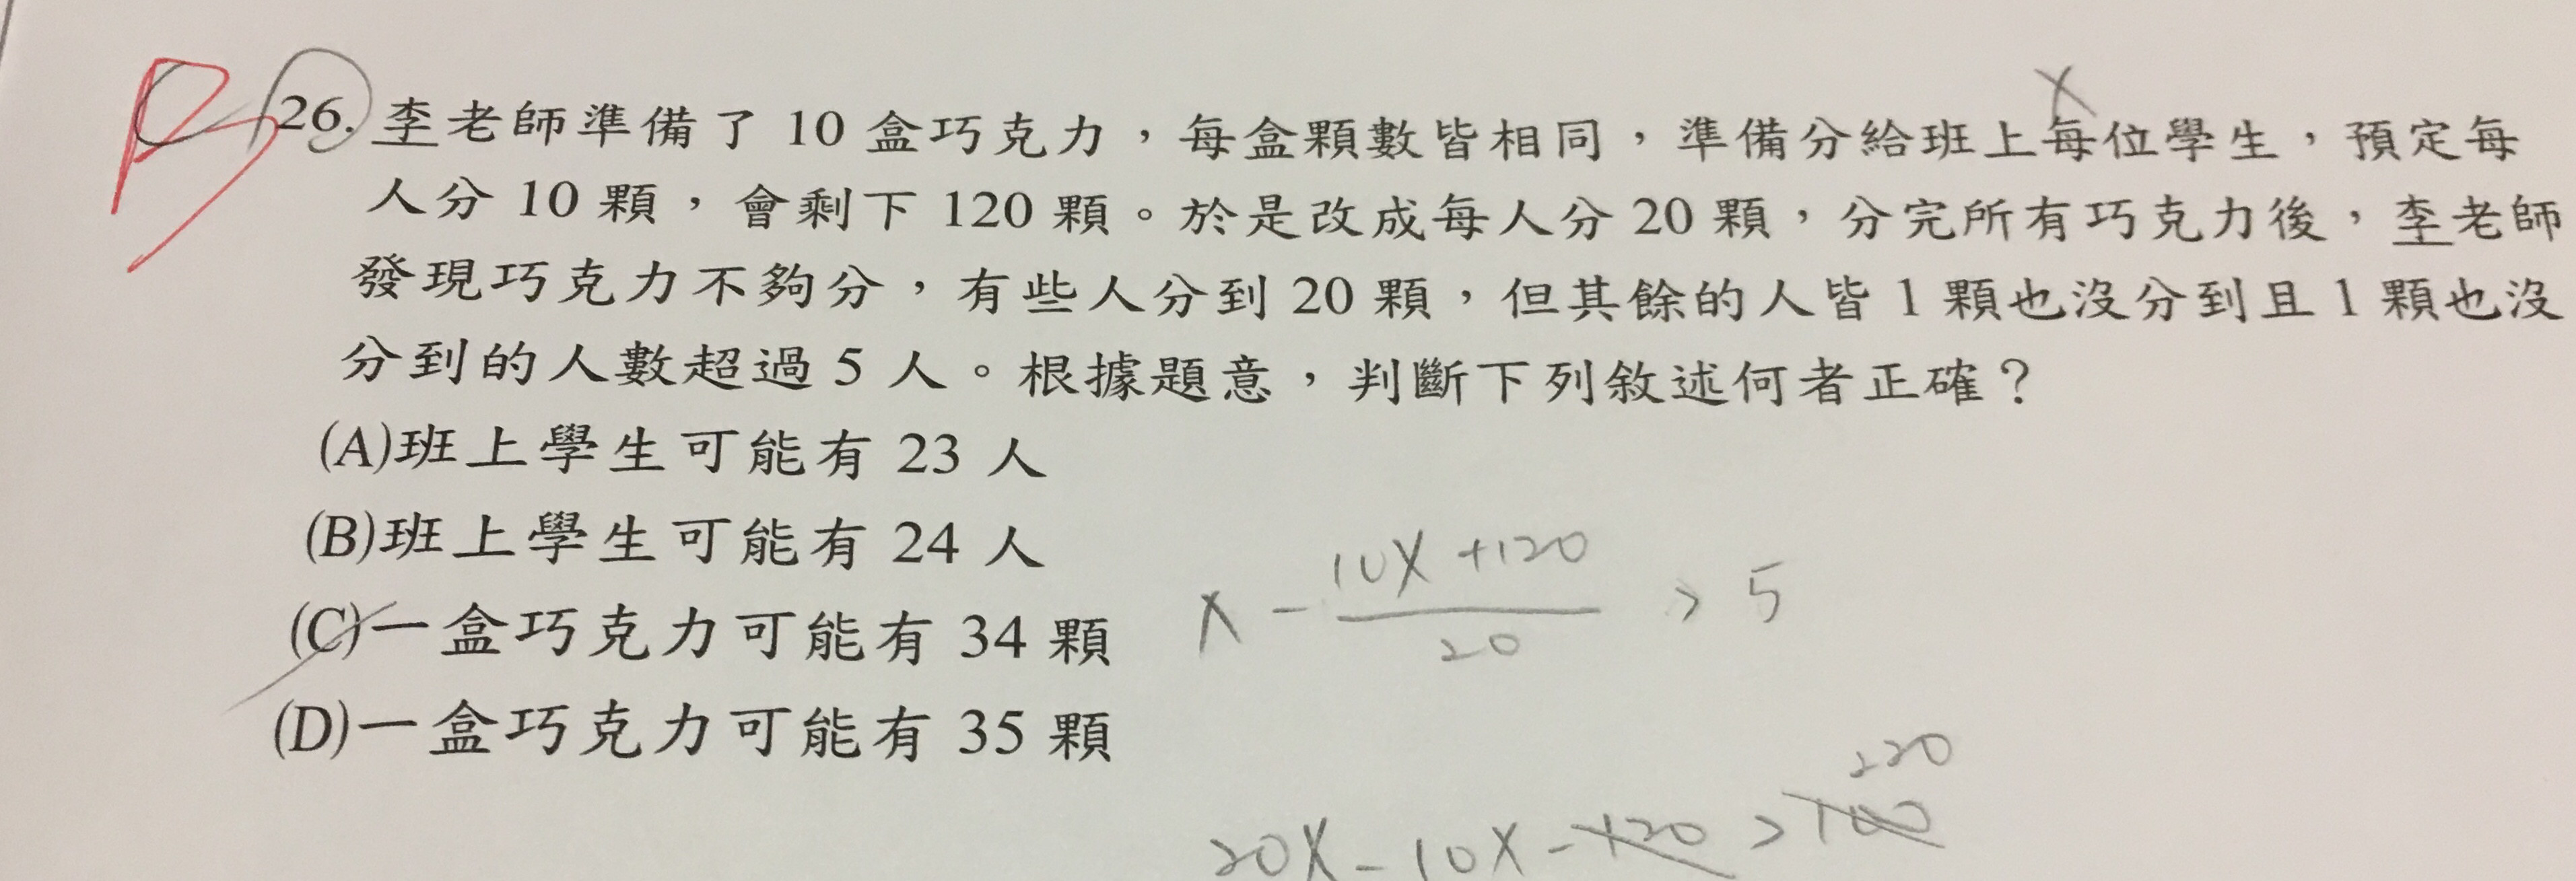 B
C
26. 李老師準備了 10 盒巧克力，每盒顆數皆相同，準備分給班上每位學生，預定每
x
人分 10 顆，會剩下 120 顆。於是改成每人分 20 顆，分完所有巧克力後，李老師
發現巧克力不夠分，有些人分到 20 顆，但其餘的人皆 1 顆也沒分到且 1 顆也沒
分到的人數超過 5 人。根據題意，判斷下列敘述何者正確？
(A)班上學生可能有 23 人
(B)班上學生可能有 24 人
(C)一盒巧克力可能有 34 顆
(D)一盒巧克力可能有 35 顆
x - (10x +120)/20 > 5
220
20x - 10x - 120 > 100